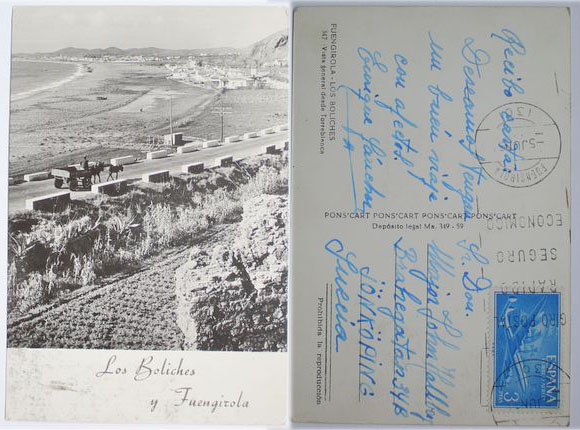 Los Boliches
y Fuengirola
FUENGIROLA - LOS BOLICHES
347 - Vista general desde Torreblanca
Recibo carta.
Deseamos tenga
un buen viaje
con afecto.
Enrique Sánchez
PONS'CART PONS'CART PONS'CART PONS'CART
Depósito legal Ma. 349 - 59
Sr. Don
Brahegatan 34 B
JÖNKÖPING
Suecia
Prohibida la reproducción
FUENGIROLA
ECONOMICO
SEGURO
RAPIDO
GIRO POSTAL
ESPAÑA
3